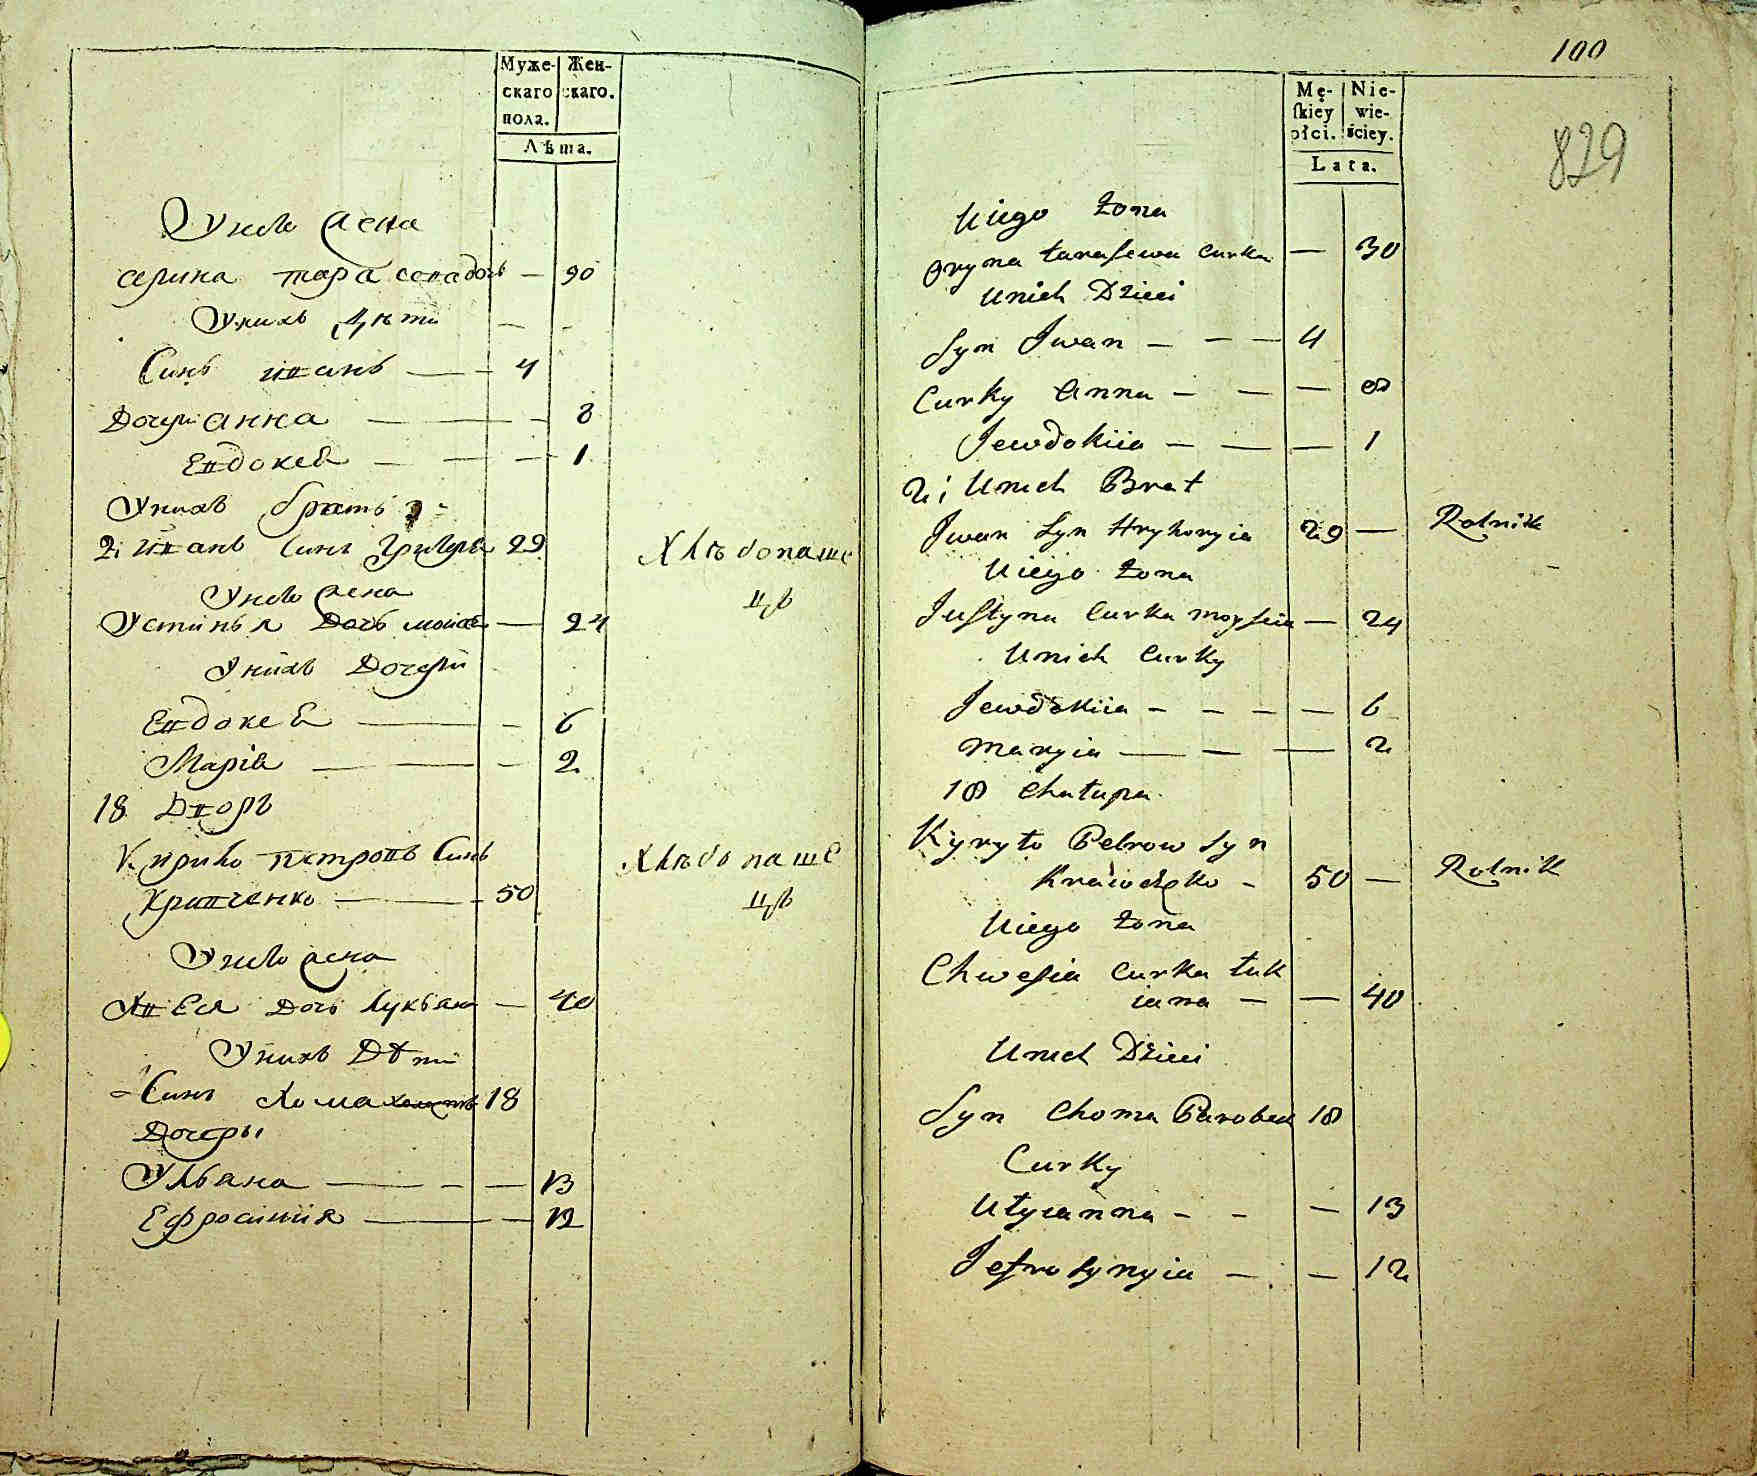 Муже-
скаго
пола.
Жен-
скаго.
Лѣта.
У него жена
Тарасова дочь — 30
У нихъ Дѣти — -
Синъ иванъ — - 4
Дочери анна — — - 8
Евдокея — — - 1
У нихъ братъ
2: иванъ Синъ Григорья 29
Хлѣбопаше
цъ
У него жена
Устинья Дочь моисея — 24
У нихъ Дочери
Евдокея — - 6
Марія — — - 2
18 Дворъ
Кирило петровъ Синъ
Кравченко — - 50
Хлѣбопаше
цъ
У него жена
Хвеся Дочь Лукьяна — 40
У нихъ Дѣти
Синъ Хома 18
Дочеры
Ульяна — - — 13
Ефросинія — — 12
100
829
Mę-
ſkiey
płci.
Nie-
wie-
ściey.
Lata.
Uiego żona
Oryna tarasewa Curka — 30
Unich Dzieci
Syn Jwan — - — 4
Curky Anna — — — 8
Jewdokiia — — — 1
2: Unich Brat
Jwan Syn Hryhoryia 29 — Rolnik
Uiego żona
Justyna Curka moysiia — 24
Unich Curky
Jewdokiia - - - — 6
Maryia — — — 2
18 Chałupa
Kyryło Petrow Syn
Krawczęko - 50 — Rolnik
Uiego żona
Chwesia Curka Łuk
iana — — 40
Unich Dzieci
Syn Choma Parobek 18
Curky
Ulyianna - - — 13
Jefrosynyia — - — 12